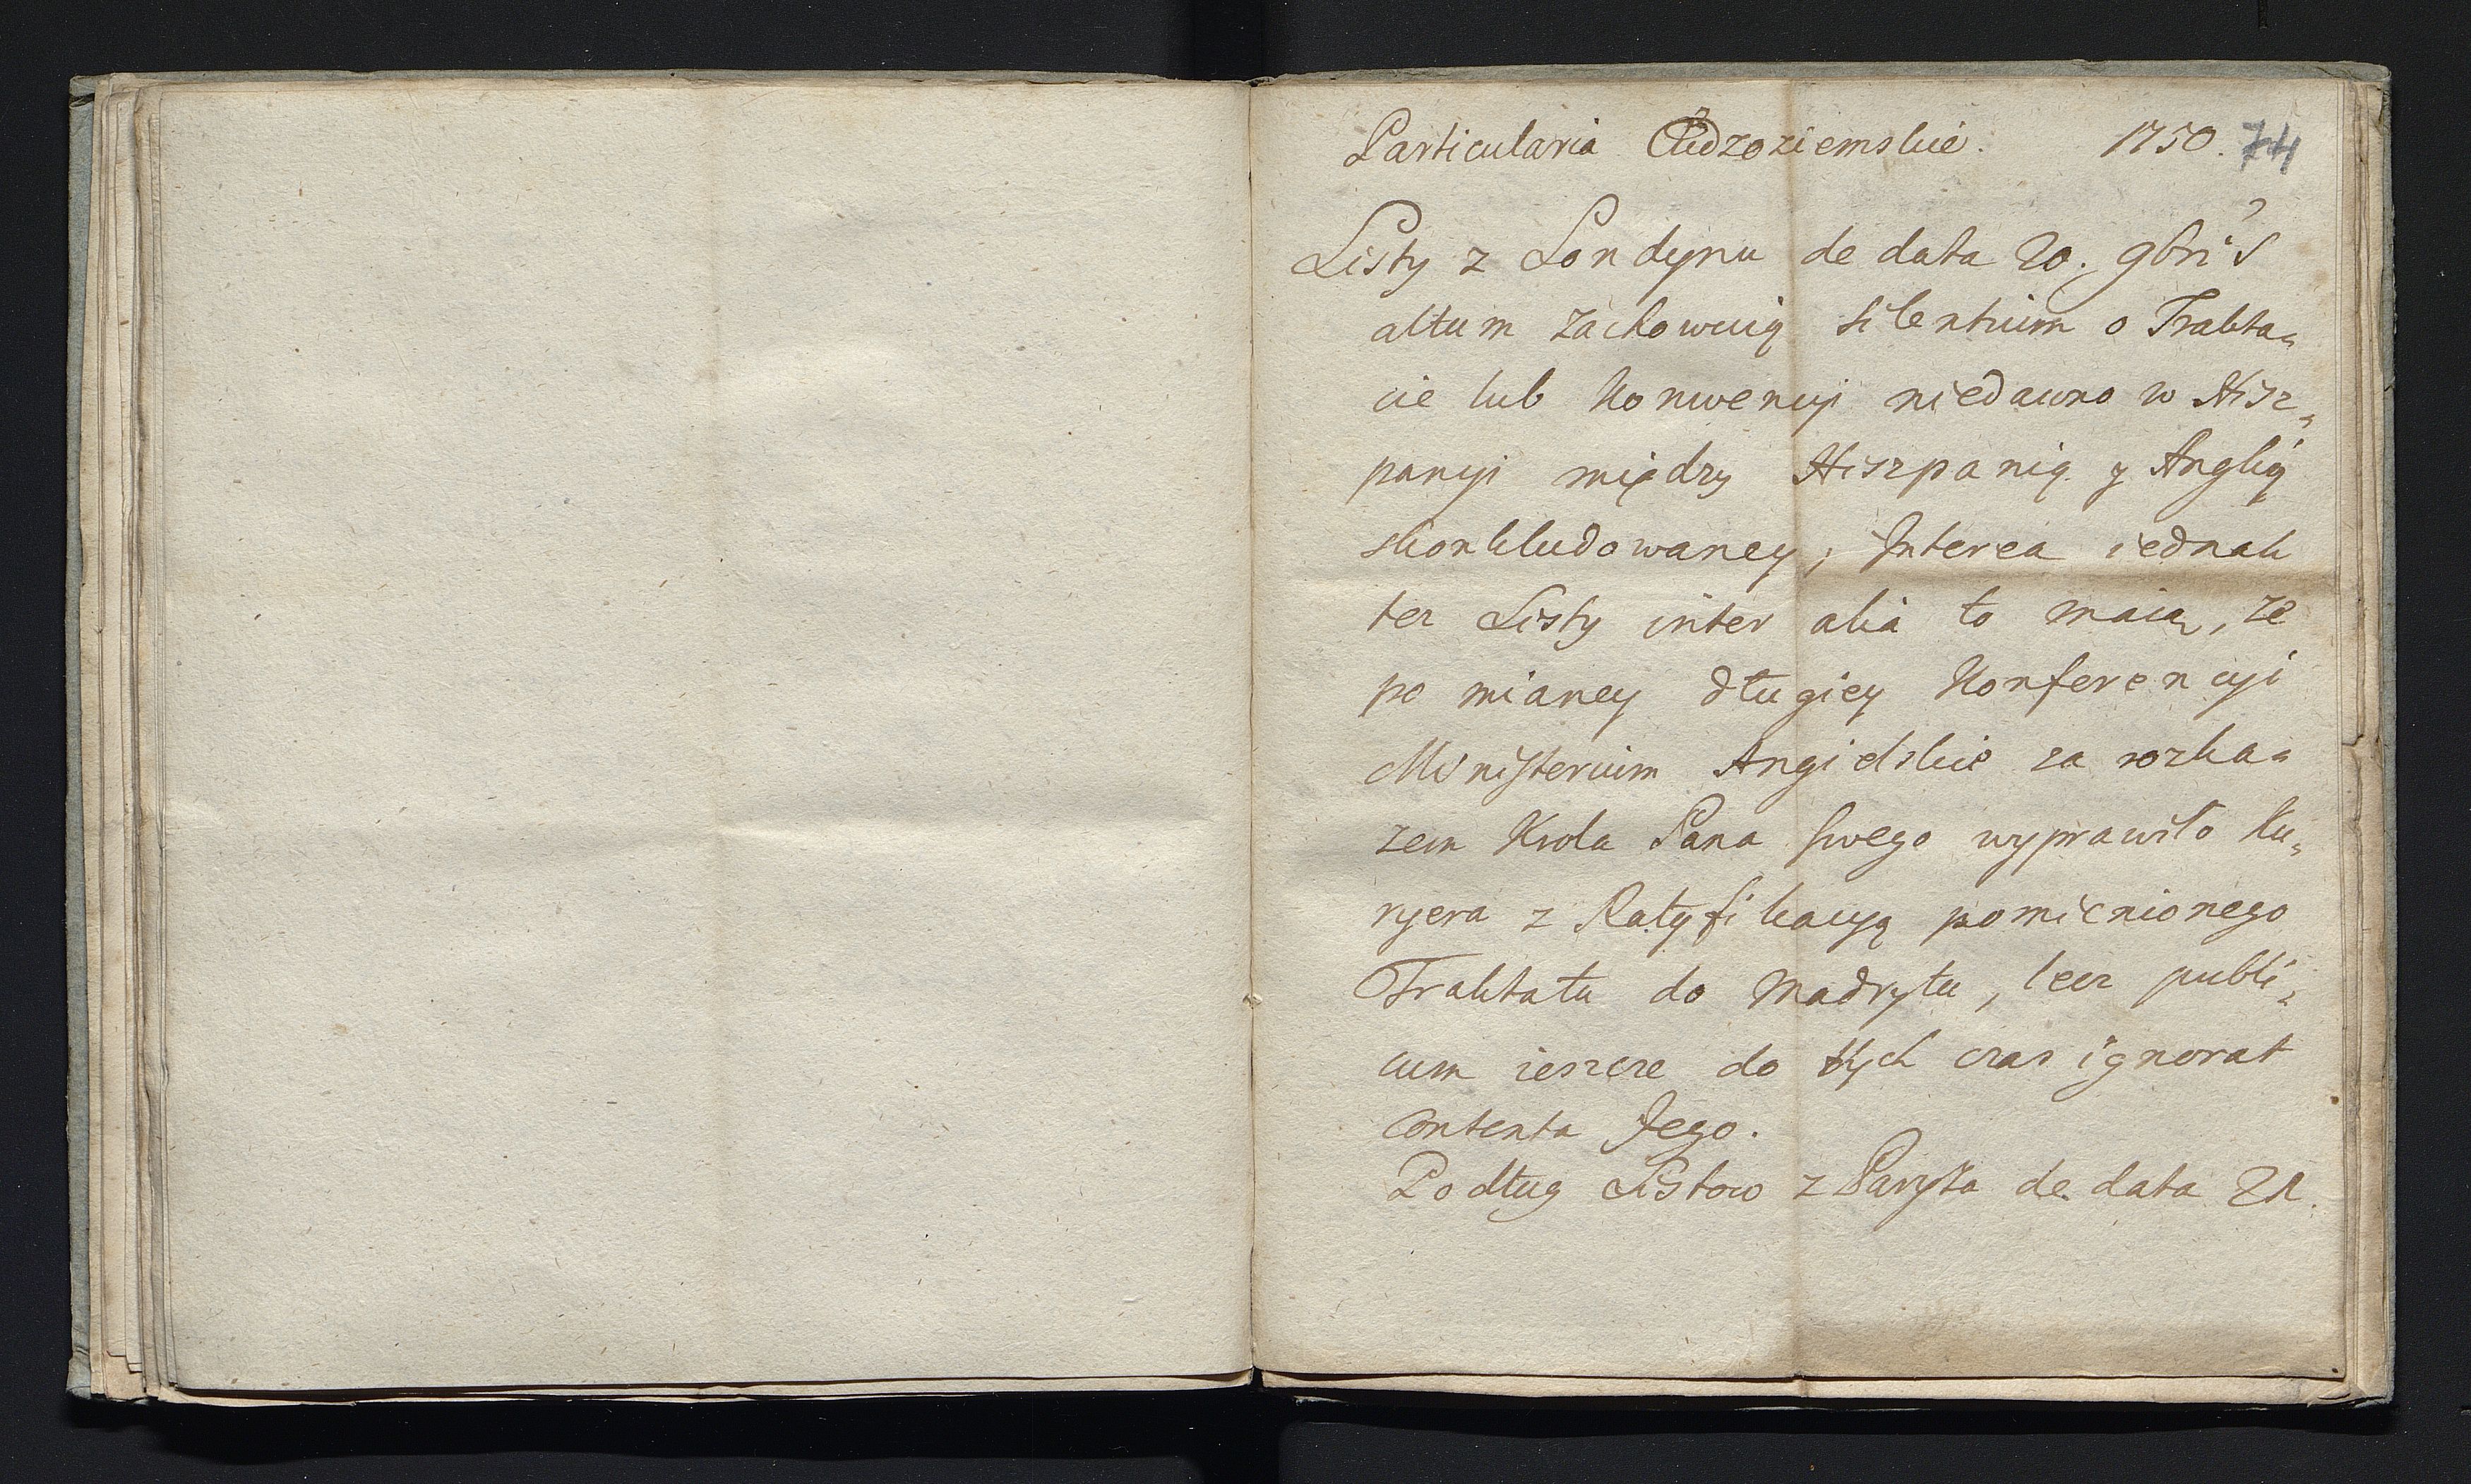 Particularia Cudzoziemskie. 1750. 74
Listy z Londynu de data 20. 9bri's
altum zachowuią silentium o Trakta=
cie lub Konwencyi niedawno w Hisz=
panyi między Hiszpanią y Anglią
skonkludowaney; Interea iednak
tez Listy inter alia to maią, ze
po mianey długiey Konferencyi
Ministerium Angielskie za rozka=
zem Krola Pana swego wyprawiło Ku=
ryera z Ratyfikacyą pomienionego
Traktatu do Madrytu, lecz publi=
cum ieszcze do tych czas ignorat
contenta Jego.
Podług Listow z Paryża de data 21.